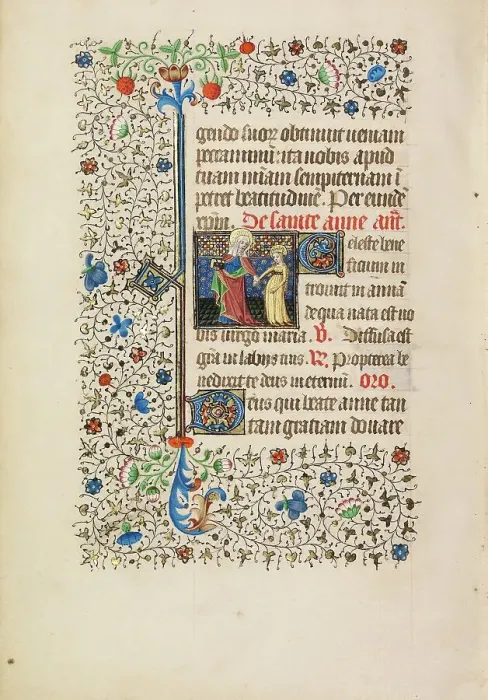 gendo suor obtinuit ueniam
peccaminū: ita nobis apud
tuam mīam sempiternam ī
petret beatitudinē. Per eundē
xpm. De sainte anne añt.
Celeste bene
ficium in
troiuit in annā
de qua nata est no
bis uirgo maria. V. Diffusa est
grā in labijs tuis. R. Propterea be
nedixit te deus in eternū. ORO.
Deus qui beate anne tan
tam gratiam donare